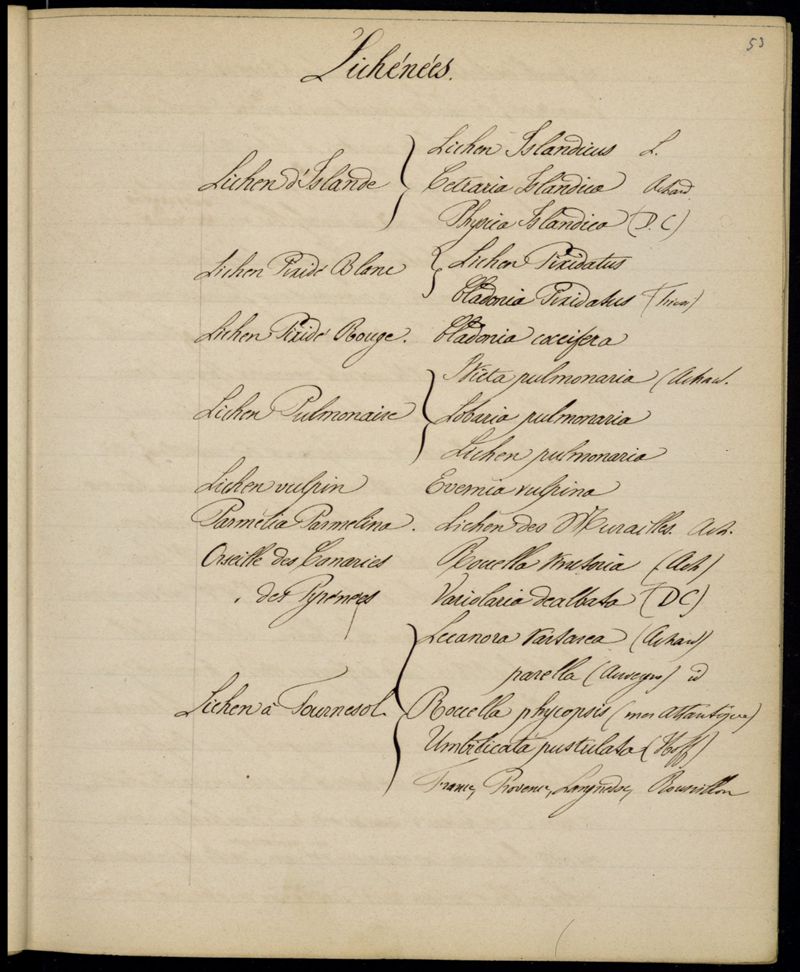 53
Lichénées.
Lichen d'Islande } Lichen Islandicus L.
Cetraria Islandica Achard
Physica Islandica (D.C)
Lichen Pixidé Blanc { Lichen Pixidatus
Cladonia Pixidatus
Lichen Pixidé Rouge. Cladonia coccifera
Lichen Pulmonaire { Sticta pulmonaria (Achard.
Lobaria pulmonaria
Lichen pulmonaria
Lichen vulpin Evernia vulpina
Parmelia Parmelina. Lichen des Murailles. Ach.
Orseille des Canaries Roccella tinctoria (Ach)
" des Pyrénées Variolaria dealbata (DC)
Lichen à Tournesol. { Lecanora tartarea (Achard)
parella (Auvergne) id
Roccella phycopsis (mer atlantique)
Umbilicata pustulata (Hoff)
France, Provence, Languedoc, Roussillon